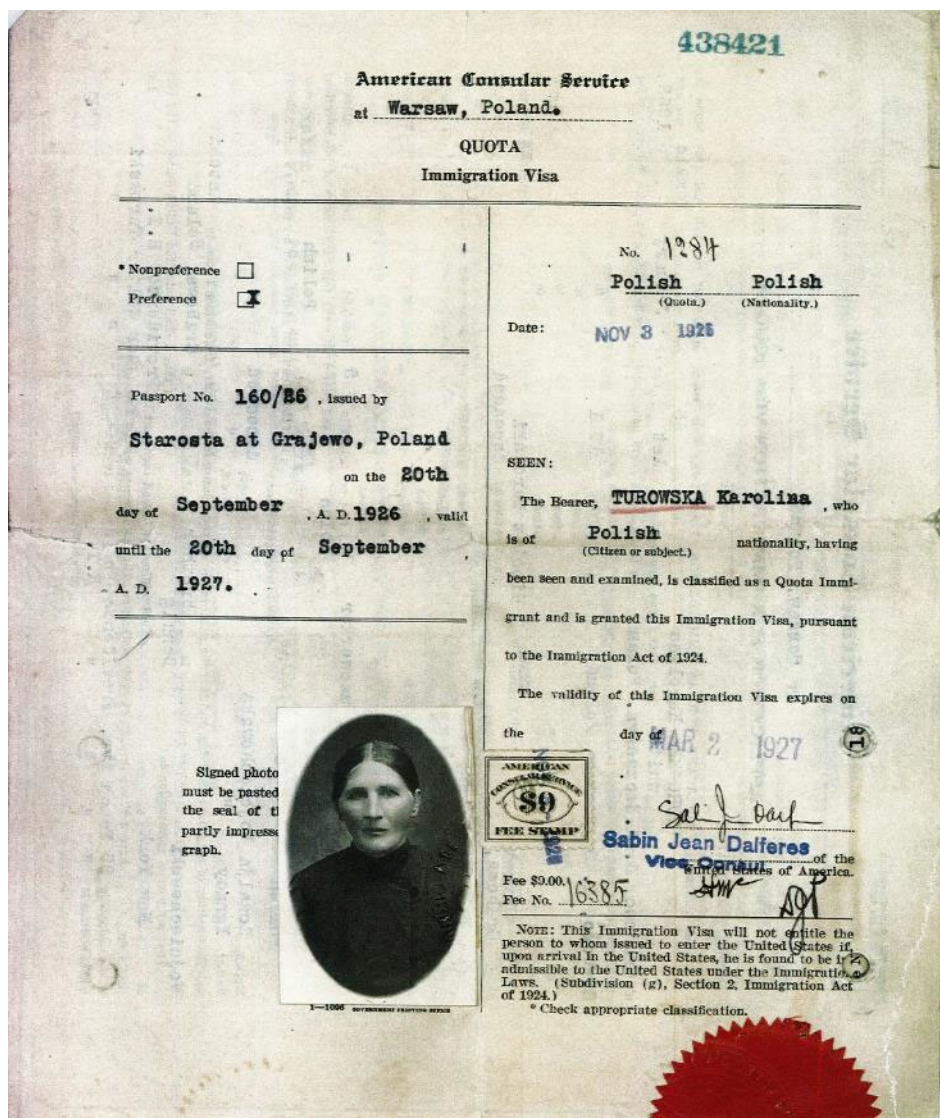 438421
American Consular Service
at Warsaw, Poland.
QUOTA
Immigration Visa
* Nonpreference
Preference X
Passport No. 160/26, issued by
Starosta at Grajewo, Poland
on the 20th
day of September, A. D. 1926, valid
until the 20th day of September,
A. D. 1927.
Signed photo
must be pasted
the seal of t
partly impresse
graph.
1—1096 GOVERNMENT PRINTING OFFICE
No. 1284
Polish Polish
(Quota.) (Nationality.)
Date: NOV 3 1926
SEEN:
The Bearer, TUROWSKA Karolina, who
is of Polish nationality, having
(Citizen or subject.)
been seen and examined, is classified as a Quota Immi-
grant and is granted this Immigration Visa, pursuant
to the Immigration Act of 1924.
The validity of this Immigration Visa expires on
the day of MAR 2 1927
AMERICAN
CONSULAR SERVICE
$9
FEE STAMP
Sabin Jean Dalferes
Vice Consul of the
United States of America.
Fee $9.00.
Fee No. 16385
NOTE: This Immigration Visa will not entitle the
person to whom issued to enter the United States if,
upon arrival in the United States, he is found to be in-
admissible to the United States under the Immigration
Laws. (Subdivision (g), Section 2, Immigration Act
of 1924.)
* Check appropriate classification.